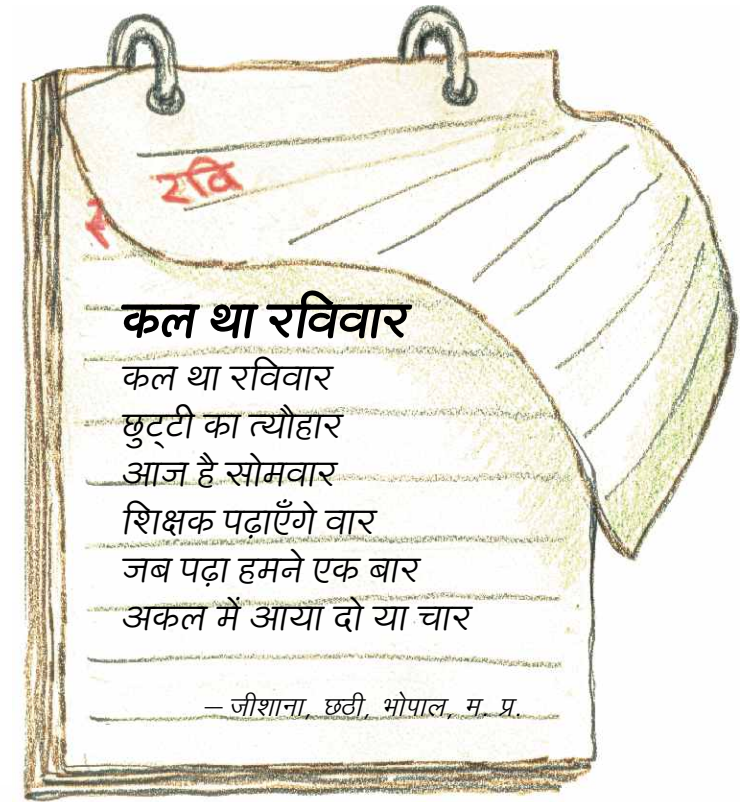 रवि
कल था रविवार
कल था रविवार
छुट्टी का त्यौहार
आज है सोमवार
शिक्षक पढ़ाएँगे वार
जब पढ़ा हमने एक बार
अकल में आया दो या चार
– जीशाना, छठी, भोपाल, म. प्र.